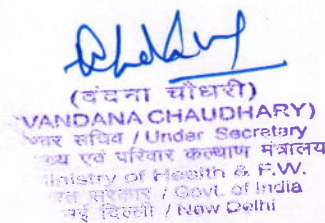 (वंदना चौधरी)
(VANDANA CHAUDHARY)
सचिव / Under Secretary
एवं परिवार कल्याण मंत्रालय
Ministry of Health & F.W.
सरकार / Govt. of India
नई दिल्ली / New Delhi